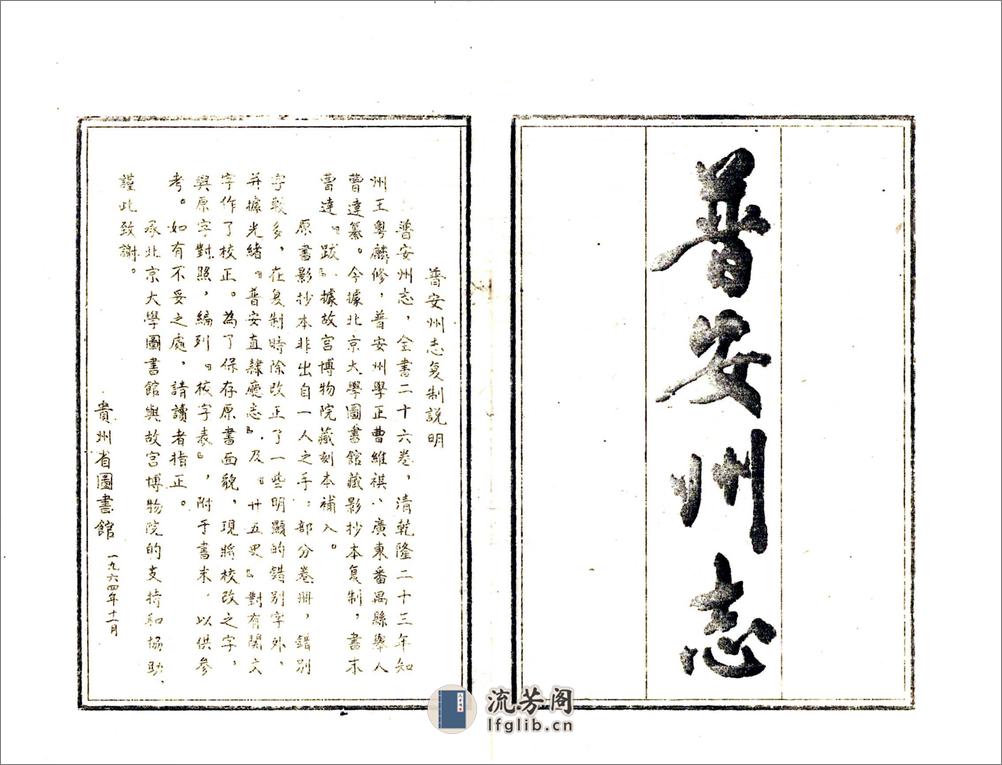 普安州志
普安州志复制説明
普安州志,全書二十六卷,清乾隆二十三年知
州王粵麟修,普安州學正曹維祺、廣東番禺縣舉人
曹達纂。今據北京大學圖書館藏影抄本复制,書末
曹達『跋』據故宮博物院藏刻本補入。
原書影抄本非出自一人之手;部分卷冊,錯別
字較多,在复制時除改正了一些明顯的錯别字外,
并據光緒『普安直隸廳志』及『廿五史』對有関文
字作了校正。為了保存原書面貌,現將校改之字,
與原字對照,編列『校字表』,附于書末,以供參
考。如有不妥之處,請讀者指正。
承北京大學圖書館與故宮博物院的支持和協助、
謹此致謝。
貴州省圖書館 一九六四年十一月
流芳阁
lfglib.cn